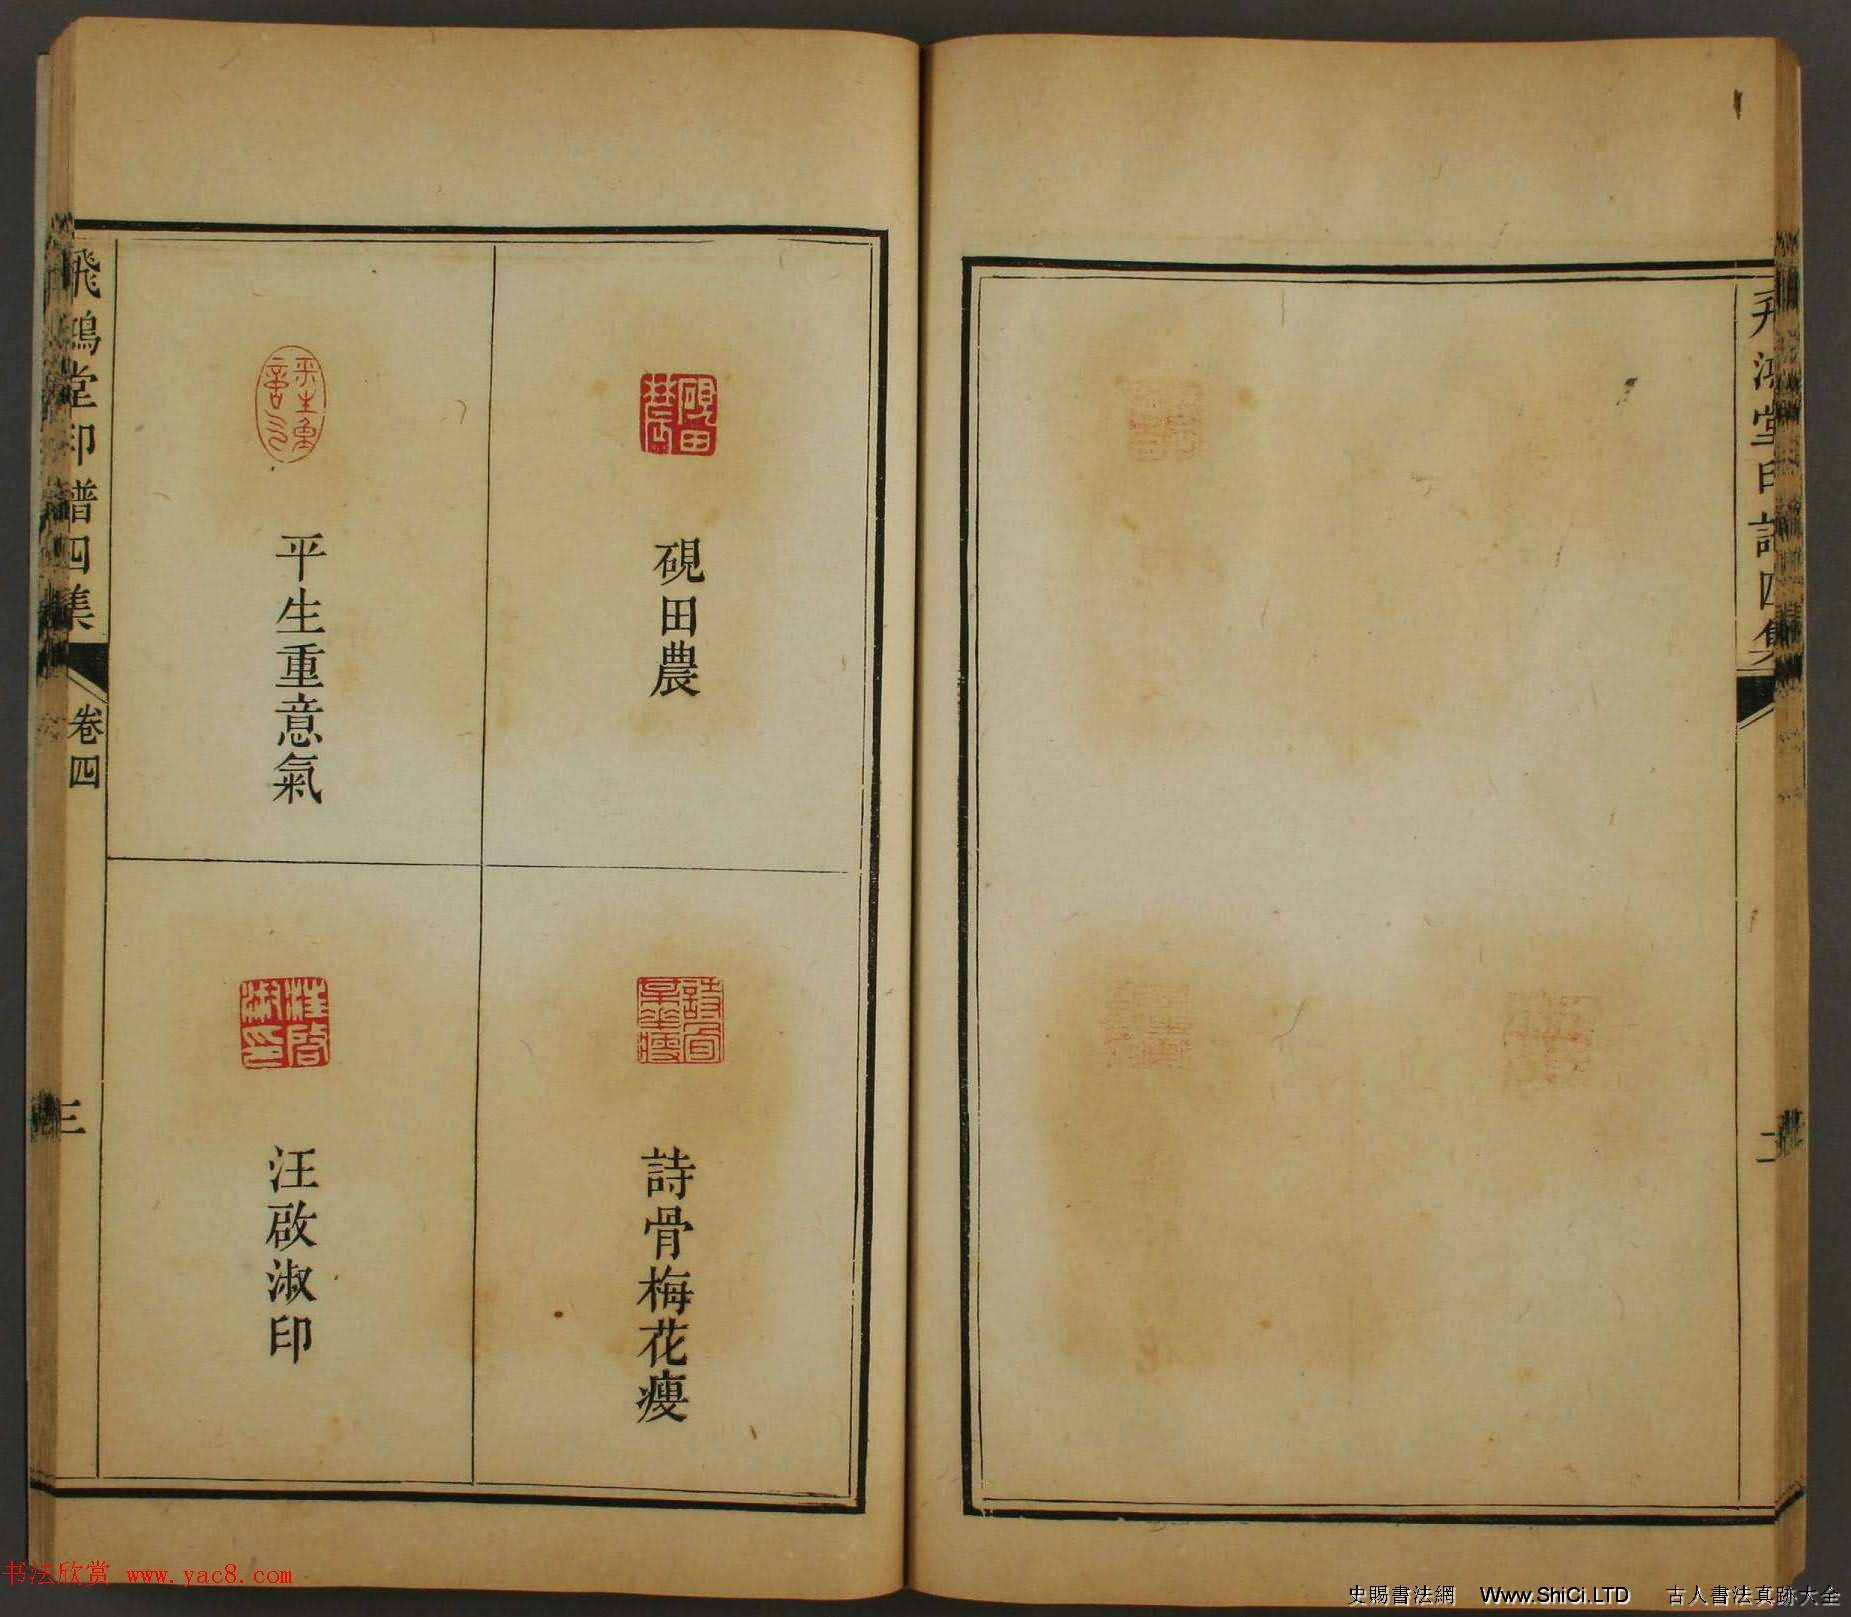 飛鴻堂印譜四集
二
硯田農
平生重意氣
詩骨梅花瘦
汪啟淑印
飛鴻堂印譜四集
卷四
三
书法欣赏 www.yac8.com
史賜書法網 Www.ShiCi.LTD 古人書法真跡大全